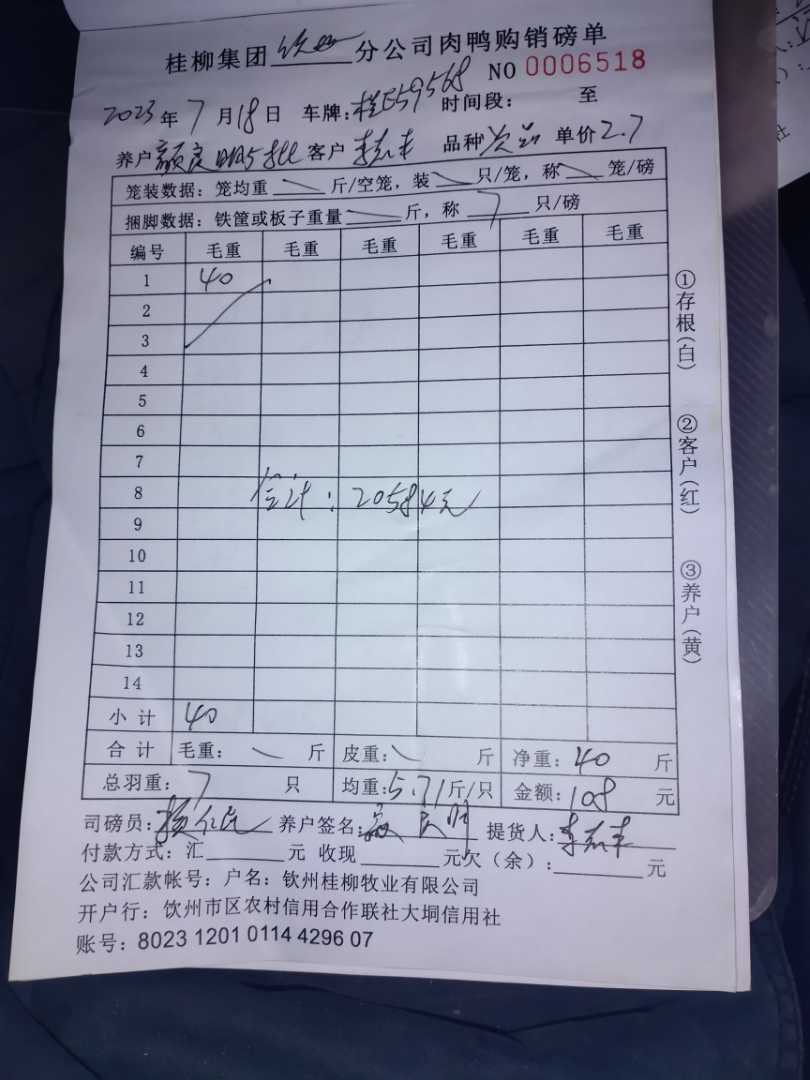 桂柳集团 钦州 分公司肉鸭购销磅单
NO 0006518
2023年7月18日 车牌:桂E59568 时间段: 至
养户 颜良明5批 客户 品种 次品 单价2.7
笼装数据:笼均重 斤/空笼,装 只/笼,称 笼/磅
捆脚数据:铁筐或板子重量 斤,称 7 只/磅
编号 毛重 毛重 毛重 毛重 毛重 毛重
1 40
2
3
4
5
6
7
8
合计:20584元
9
10
11
12
13
14
小计 40
合计 毛重: 斤 皮重: 斤 净重:40 斤
总羽重:7 只 均重:5.71斤/只 金额:108 元
司磅员:杨仁民 养户签名:颜良明 提货人:
付款方式:汇 元 收现 元欠(余): 元
公司汇款帐号:户名:钦州桂柳牧业有限公司
开户行:钦州市区农村信用合作联社大垌信用社
账号:8023 1201 0114 4296 07
①存根(白)
②客户(红)
③养户(黄)